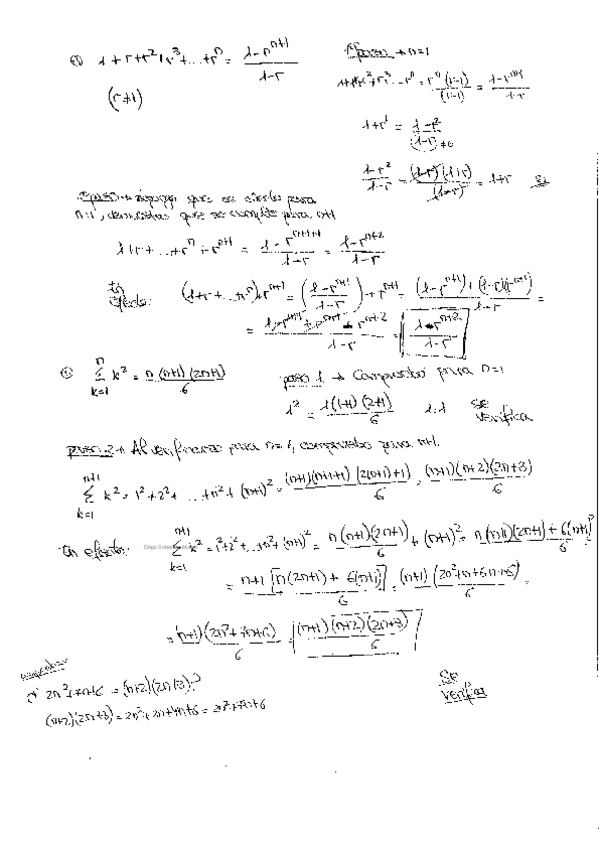 1 + r + r² + r³ + ... + rⁿ = (1 - rⁿ⁺¹)/(1 - r)
(r ≠ 1)
1º paso → n=1
1 + r¹ = (1 - r²)/(1 - r) ≠ 0
(1 - r²)/(1 - r) = (1 - r)(1 + r)/(1 - r) = 1 + r Si
que es cierto para
n=1, demostrar que se cumple para n+1
1 + r + ... + rⁿ + rⁿ⁺¹ = (1 - rⁿ⁺¹⁺¹)/(1 - r) = (1 - rⁿ⁺²)/(1 - r)
En efecto: (1 + r + ... rⁿ) + rⁿ⁺¹ = ((1 - rⁿ⁺¹)/(1 - r)) + rⁿ⁺¹ = ((1 - rⁿ⁺¹) + (1 - r)(rⁿ⁺¹))/(1 - r) =
= (1 - rⁿ⁺¹ + rⁿ⁺¹ - rⁿ⁺²)/(1 - r) = (1 - rⁿ⁺²)/(1 - r)
∑ k=1 n k² = n(n+1)(2n+1)/6
paso 1 → Comprobar para n=1
1² = 1(1+1)(2+1)/6 1=1 Se verifica
paso 2 → Al verificarse para n=1, comprobar para n+1.
∑ k=1 n+1 k² = 1² + 2² + ... + n² + (n+1)² = (n+1)(n+1+1)(2(n+1)+1)/6 = (n+1)(n+2)(2n+3)/6
En efecto: ∑ k=1 n+1 k² = 1² + 2² + ... + n² + (n+1)² = n(n+1)(2n+1)/6 + (n+1)² = (n(n+1)(2n+1) + 6(n+1)²)/6
= n+1 [n(2n+1) + 6(n+1)]/6 = (n+1)(2n² + n + 6n + 6)/6 =
= (n+1)(2n² + 7n + 6)/6 = (n+1)(n+2)(2n+3)/6
¿2n² + 7n + 6 = (n+2)(2n+3)?
(n+2)(2n+3) = 2n² + 3n + 4n + 6 = 2n² + 7n + 6
Se
verifica